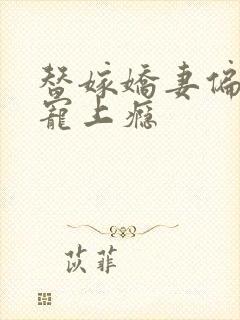 替嫁嬌妻偏
寵上癮
苡菲